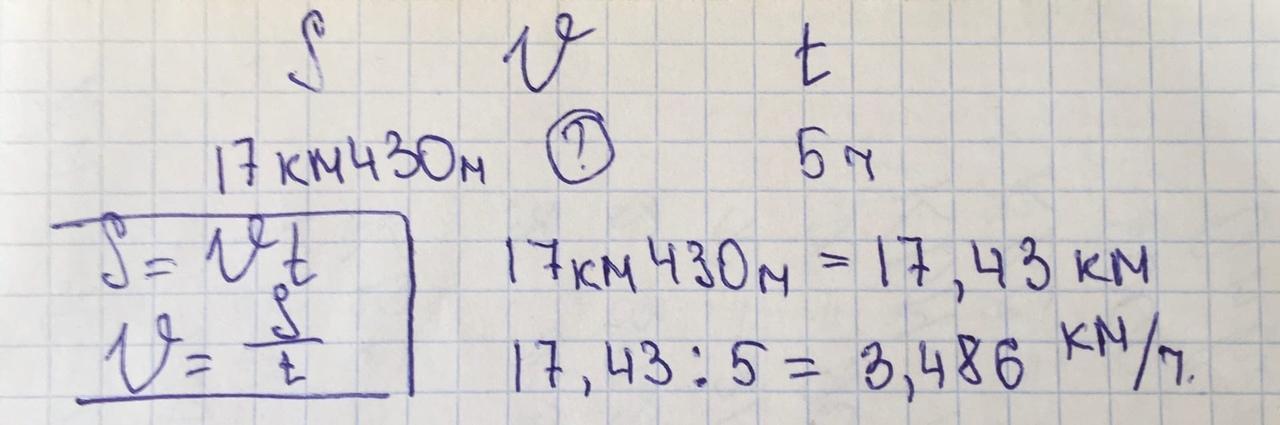 S V t
17км430м ? 5ч
S = Vt
V = S/t
17км430м = 17,43 км
17,43 : 5 = 3,486 км/ч.